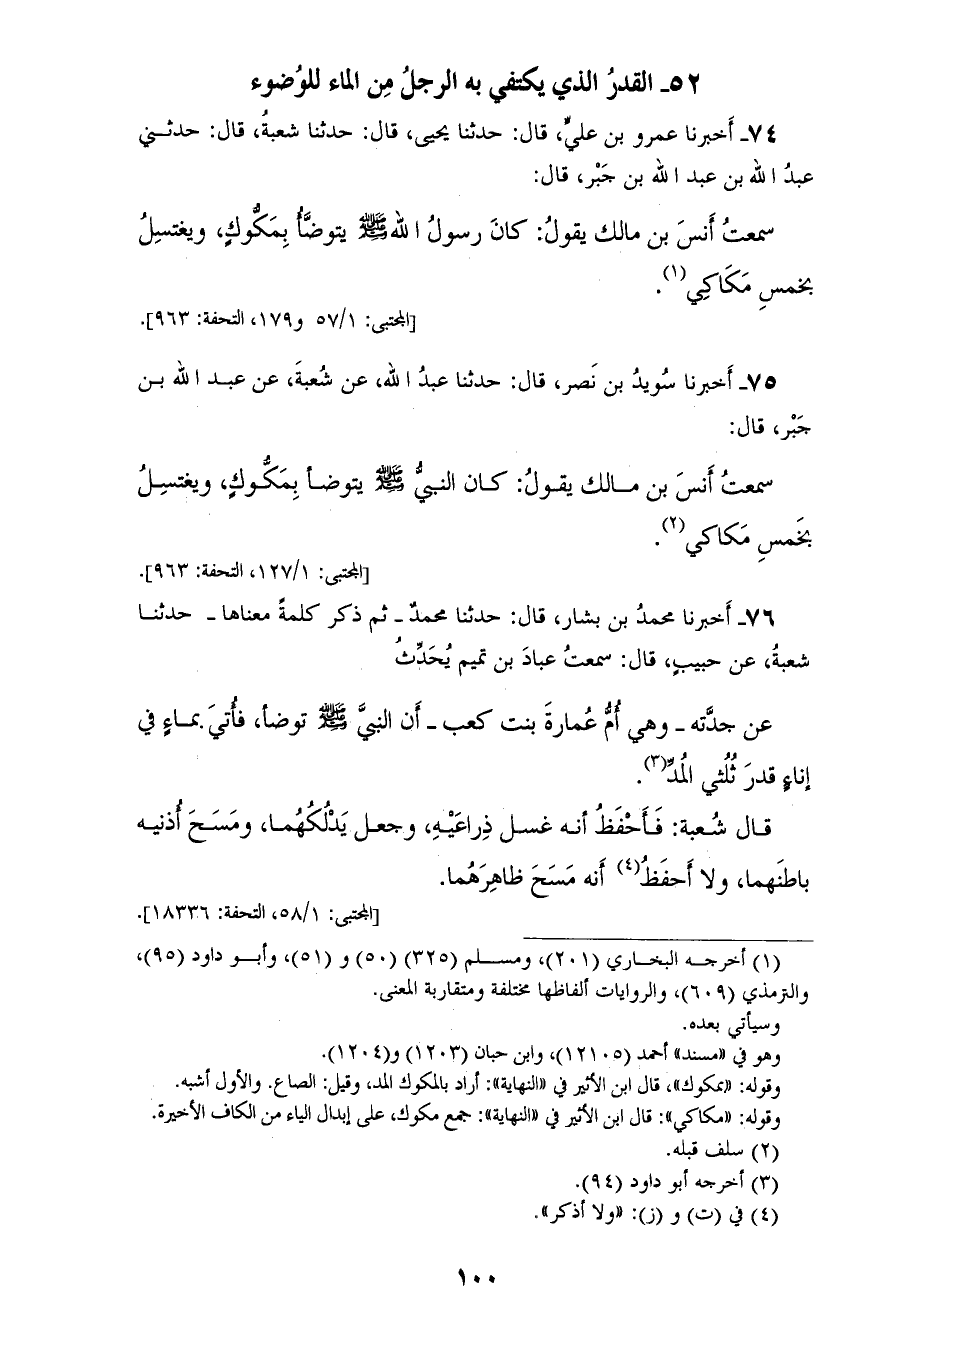 ٥٢ـ القدرُ الذي يكتفي به الرجلُ مِن الماء للوُضوء
٧٤ـ أَخبرنا عمرو بن عليٍّ، قال: حدثنا يحيى، قال: حدثنا شعبةُ، قال: حدثني
عبدُ الله بن عبد الله بن جَبْر، قال:
سمعتُ أَنسَ بن مالك يقولُ: كانَ رسولُ اللهﷺ يتوضَّأُ بِمَكُّوكٍ، ويغتسِلُ
بخمسِ مَكَاكِي(١).
[المجتبى: ٥٧/١ و١٧٩، التحفة: ٩٦٣].
٧٥ـ أَخبرنا سُويدُ بن نَصر، قال: حدثنا عبدُ الله، عن شُعبةَ، عن عبد الله بن
جَبْر، قال:
سمعتُ أَنسَ بن مالك يقولُ: كان النبيُّ ﷺ يتوضأ بِمَكُّوكٍ، ويغتسِلُ
بخَمسِ مَكاكي(٢).
[المجتبى: ١٢٧/١، التحفة: ٩٦٣].
٧٦ـ أَخبرنا محمدُ بن بشار، قال: حدثنا محمدٌ ـ ثم ذكر كلمةً معناها ـ حدثنا
شعبةُ، عن حبيبٍ، قال: سمعتُ عبادَ بن تميم يُحَدِّثُ
عن جدَّته ـ وهي أُمُّ عُمارةَ بنت كعب ـ أَن النبيَّ ﷺ توضأ، فأُتيَ بماءٍ في
إناءٍ قدرَ ثُلُثي المُدِّ(٣).
قال شُعبة: فَأَحْفَظُ أنه غسل ذِراعَيْهِ، وجعل يَدْلُكُهُما، ومَسَحَ أُذنيه
باطنَهما، ولا أَحفَظُ(٤) أَنه مَسَحَ ظاهِرَهُما.
[المجتبى: ٥٨/١، التحفة: ١٨٣٣٦].
(١) أخرجه البخاري (٢٠١)، ومسلم (٣٢٥) (٥٠) و (٥١)، وأبو داود (٩٥)،
والترمذي (٦٠٩)، والروايات ألفاظها مختلفة ومتقاربة المعنى.
وسيأتي بعده.
وهو في «مسند» أحمد (١٢١٠٥)، وابن حبان (١٢٠٣) و(١٢٠٤).
وقوله: «بمكوك»، قال ابن الأثير في «النهاية»: أراد بالمكوك المد، وقيل: الصاع. والأول أشبه.
وقوله: «مكاكي»: قال ابن الأثير في «النهاية»: جمع مكوك، على إبدال الياء من الكاف الأخيرة.
(٢) سلف قبله.
(٣) أخرجه أبو داود (٩٤).
(٤) في (ت) و (ز): «ولا أذكر».
١٠٠